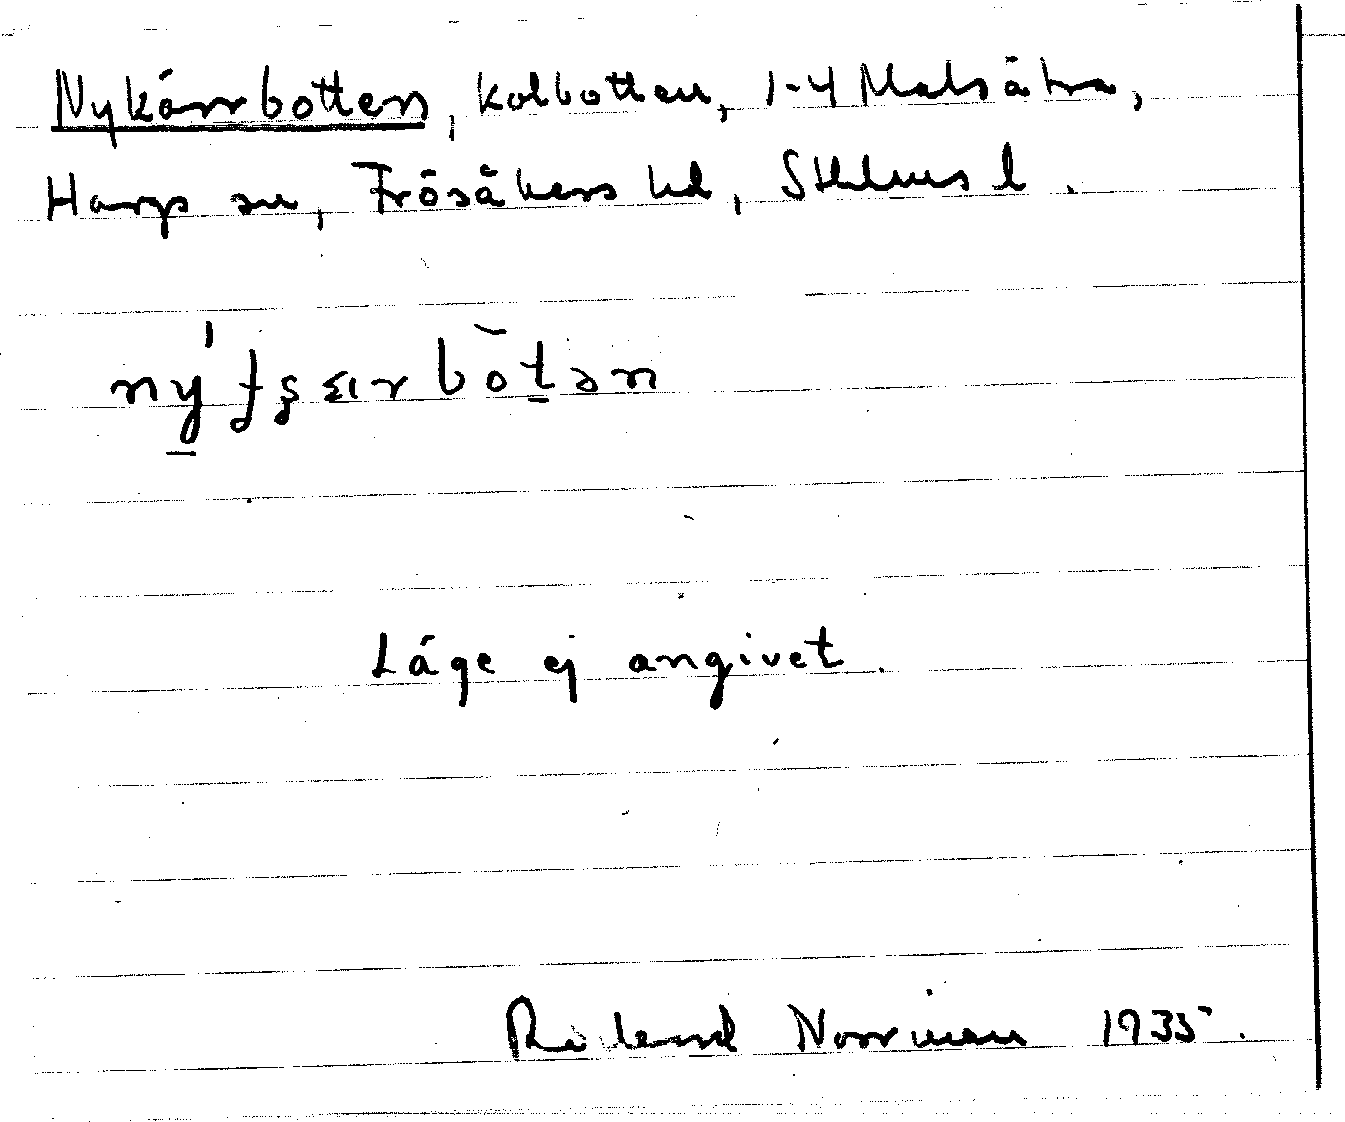 Nykärrbotten, kolbotten, 1-4 Malsätra,
Hargs sn, Frösåkers hd, Sthlms l.
Läge ej angivet.
Rickard Norrman 1935.